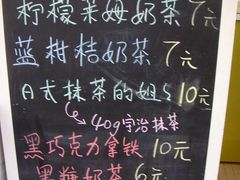 柠檬朱姆奶茶 7元
蓝柑桔奶茶 7元
日式抹茶的 10元
40g宇治抹茶
黑巧克力拿铁 10元
黑糖奶茶 6元